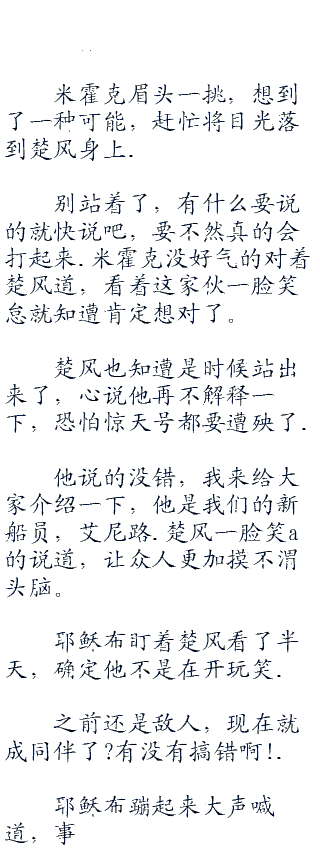 米霍克眉头一挑，想到
了一种可能，赶忙将目光落
到楚风身上.
别站着了，有什么要说
的就快说吧，要不然真的会
打起来.米霍克没好气的对着
楚风道，看着这家伙一脸笑
怠就知遭肯定想对了。
楚风也知遭是时候站出
来了，心说他再不解释一
下，恐怕惊天号都要遭殃了.
他说的没错，我来给大
家介绍一下，他是我们的新
船员，艾尼路.楚风一脸笑a
的说道，让众人更加摸不渭
头脑。
耶稣布盯着楚风看了半
天，确定他不是在开玩笑.
之前还是敌人，现在就
成同伴了?有没有搞错啊!.
耶稣布蹦起来大声喊
道，事